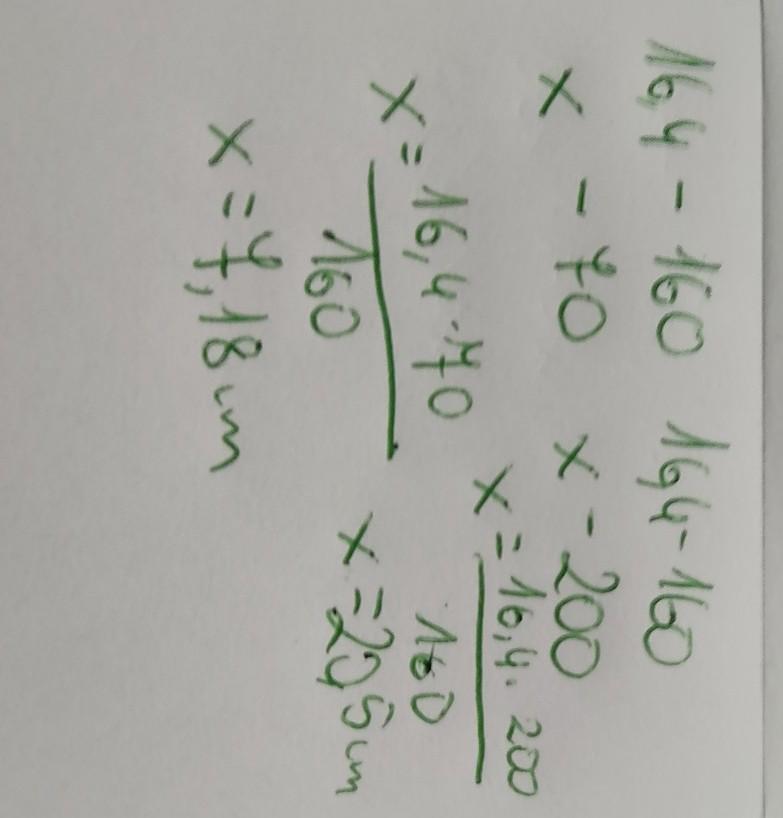 16,4 - 160
x - 70
x = 16,4·70
160
x = 7,18 cm
16,4 - 160
x - 200
x = 16,4·200
160
x = 20,5 cm